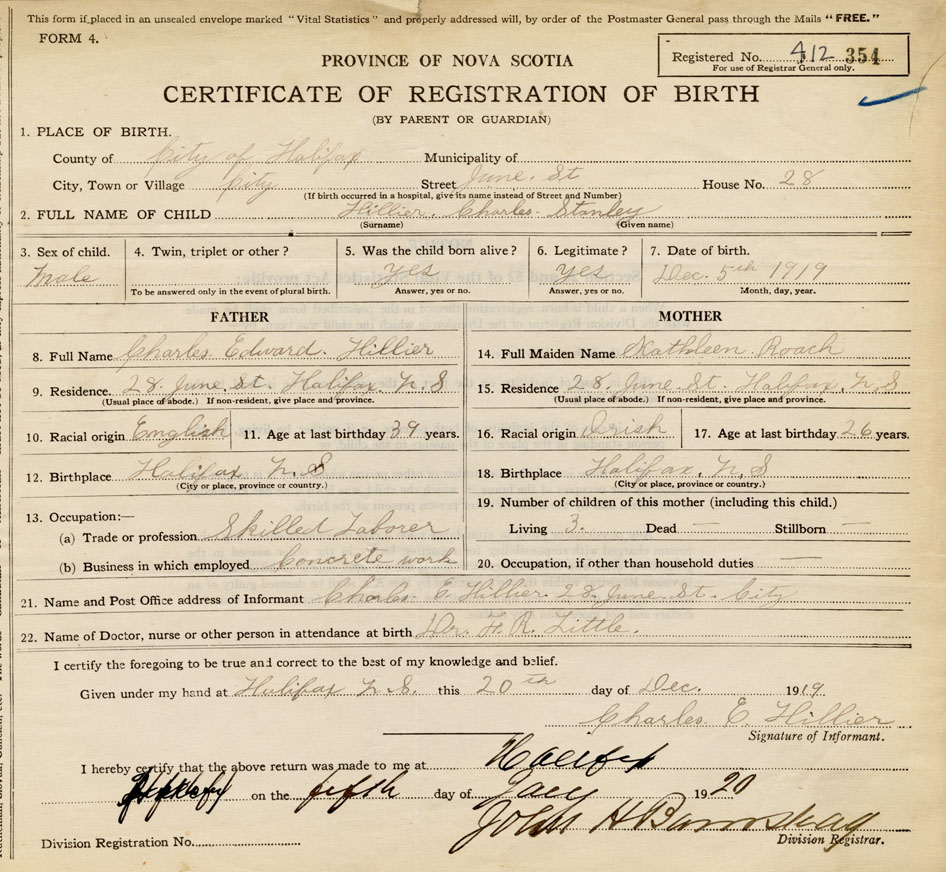 This form if placed in an unsealed envelope marked "Vital Statistics" and properly addressed will, by order of the Postmaster General pass through the Mails "FREE."
FORM 4.
Registered No. 412 354
For use of Registrar General only.
PROVINCE OF NOVA SCOTIA
CERTIFICATE OF REGISTRATION OF BIRTH
(BY PARENT OR GUARDIAN)
1. PLACE OF BIRTH.
County of City of Halifax Municipality of
City, Town or Village City Street June St House No. 28
(If birth occurred in a hospital, give its name instead of Street and Number)
2. FULL NAME OF CHILD Hillier, Charles Stanley
(Surname) (Given name)
3. Sex of child. 4. Twin, triplet or other? 5. Was the child born alive? 6. Legitimate? 7. Date of birth.
Male yes yes Dec. 5th 1919
To be answered only in the event of plural birth. Answer, yes or no. Answer, yes or no. Month, day, year.
FATHER MOTHER
8. Full Name Charles Edward Hillier 14. Full Maiden Name Kathleen Roach
9. Residence 28 June St. Halifax N.S 15. Residence 28 June St. Halifax N.S
(Usual place of abode.) If non-resident, give place and province. (Usual place of abode.) If non-resident, give place and province.
10. Racial origin English 11. Age at last birthday 39 years. 16. Racial origin Irish 17. Age at last birthday 26 years.
12. Birthplace Halifax N.S 18. Birthplace Halifax, N.S
(City or place, province or country.) (City or place, province or country.)
19. Number of children of this mother (including this child.)
13. Occupation:— Living 3. Dead — Stillborn —
(a) Trade or profession Skilled Laborer
(b) Business in which employed Concrete work 20. Occupation, if other than household duties
21. Name and Post Office address of Informant Charles E Hillier 28 June St. City
22. Name of Doctor, nurse or other person in attendance at birth Dr. F. R. Little.
I certify the foregoing to be true and correct to the best of my knowledge and belief.
Given under my hand at Halifax N.S. this 20th day of Dec. 1919
Charles E. Hillier
Signature of Informant.
I hereby certify that the above return was made to me at Halifax
on the fifth day of Jany 1920
John H Barnstead
Division Registration No. Division Registrar.